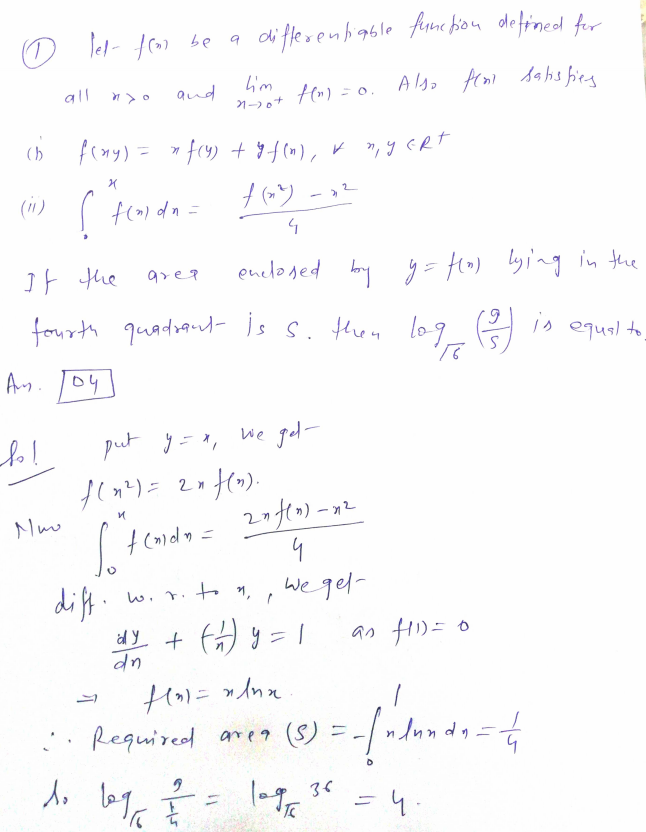 ① let f(x) be a differentiable function defined for
all x>0 and lim x→0+ f(x) = 0. Also f(x) satisfies
(i) f(xy) = x f(y) + y f(x), ∀ x, y ∈ R+
(ii) ∫₀ˣ f(x) dx = (f(x²) - x²)/4
If the area enclosed by y = f(x) lying in the
fourth quadrant is S. then log_√6 (9/S) is equal to.
Ans. 04
Sol put y = x, we get
f(x²) = 2x f(x).
Now ∫₀ˣ f(x) dx = (2x f(x) - x²)/4
diff. w. r. to x, , we get
dy/dx + (-1/x) y = 1 as f(1) = 0
⇒ f(x) = x lnx.
∴ Required area (S) = -∫₀¹ x lnx dx = 1/4
So log_√6 9/(1/4) = log_√6 36 = 4.